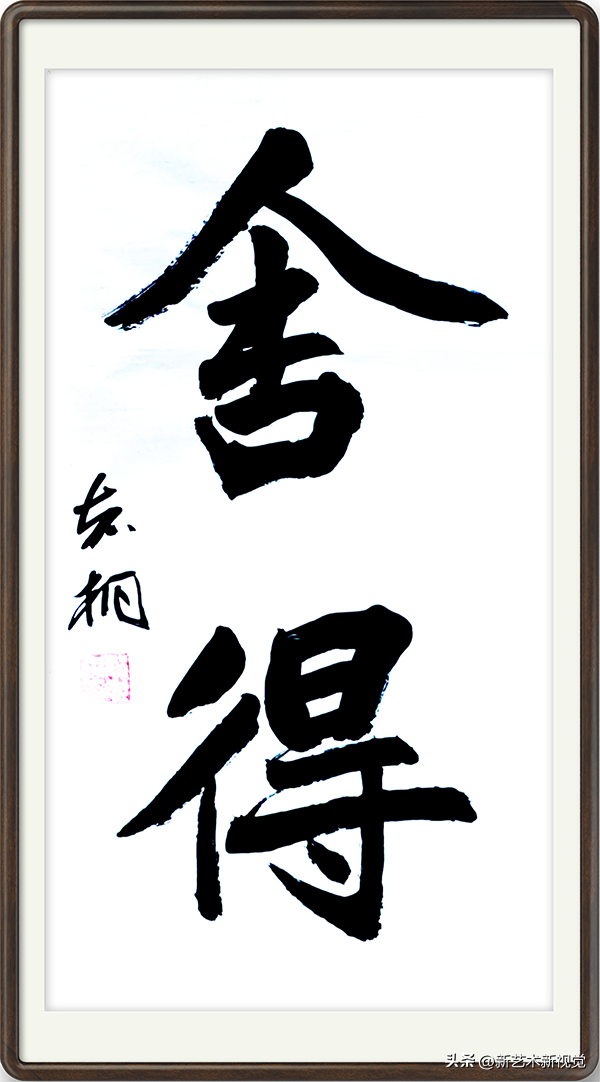 舍得
桐
头条 @新艺术新视觉